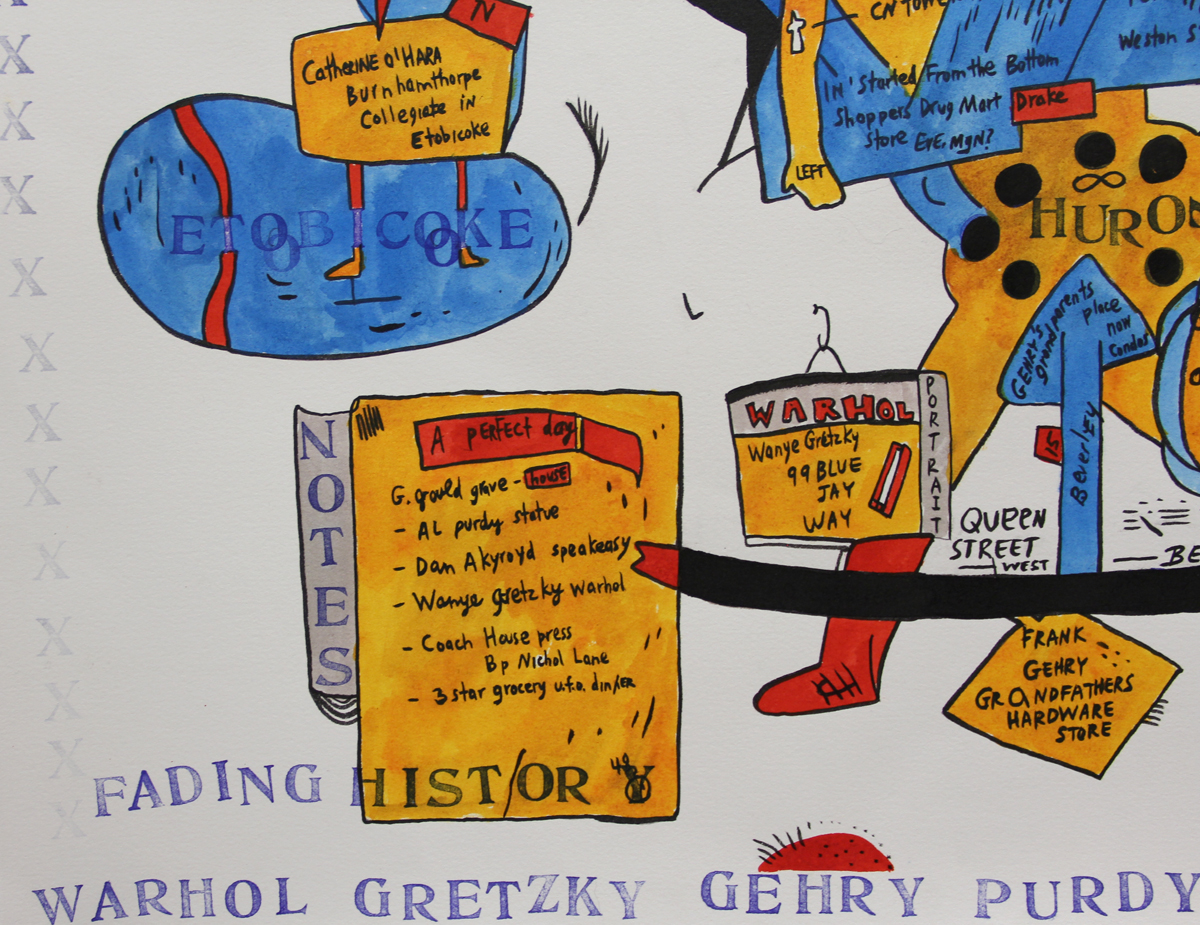 TV
CATHERINE O'HARA
Burnhamthorpe
Collegiate iN
Etobicoke
ETOBICOKE
CN TOWER
Weston
IN 'Started From the Bottom
Shoppers Drug Mart
Store
Drake
LEFT
HURO
GEHRY'S
grandparents
place
now
condos
15
BEVERLEY
QUEEN
STREET
WEST
BE
WARHOL
PORTRAIT
Wanye Gretzky
99 BLUE
JAY
WAY
NOTES
A PERFECT day
G. gould grave - house
- AL purdy statue
- Dan Akyroyd speakeasy
- Wanye gretzky warhol
- Coach House press
Bp Nichol Lane
- 3 star grocery u.f.o. dinNER
FRANK
GEHRY
GRANDFATHERS
HARDWARE
STORE
FADING HISTORY
WARHOL GRETZKY GEHRY PURDY
X
X
X
X
X
X
X
X
X
X
X
X
X